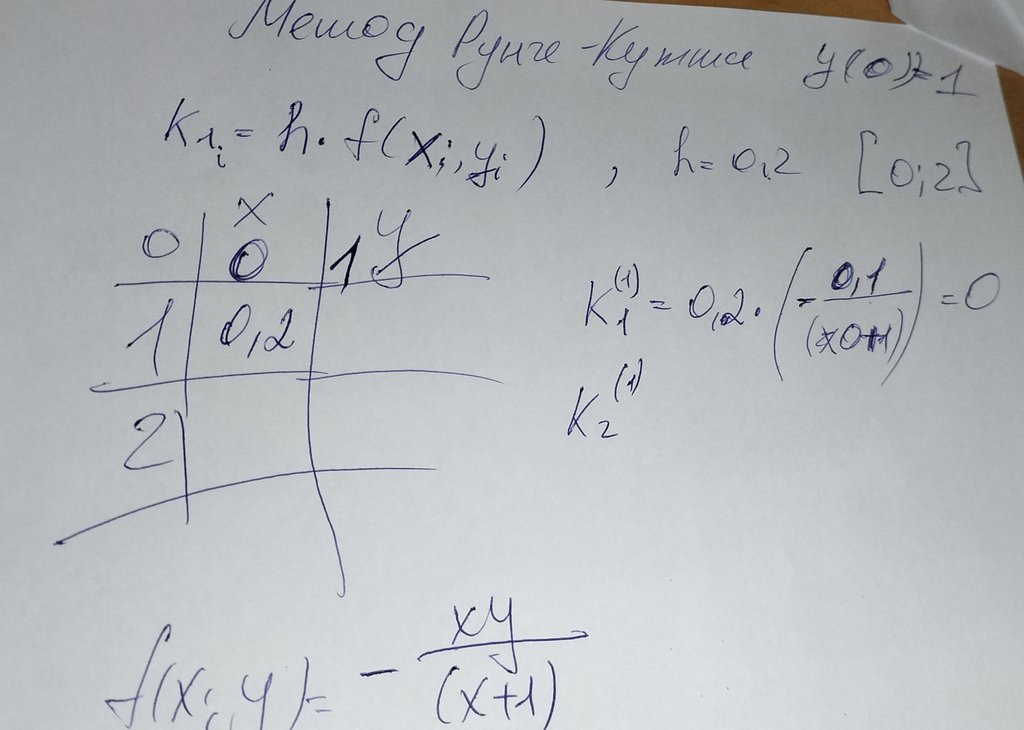 Метод Рунге-Кутта y(0)=1
K₁ᵢ = h · f(xᵢ, yᵢ) , h=0,2 [0;2]
x y
0 0 1
1 0,2
2
K₁⁽¹⁾ = 0,2 · (-0,1/(x0+1)) = 0
K₂⁽¹⁾
f(xᵢ, y) = - xy/(x+1)